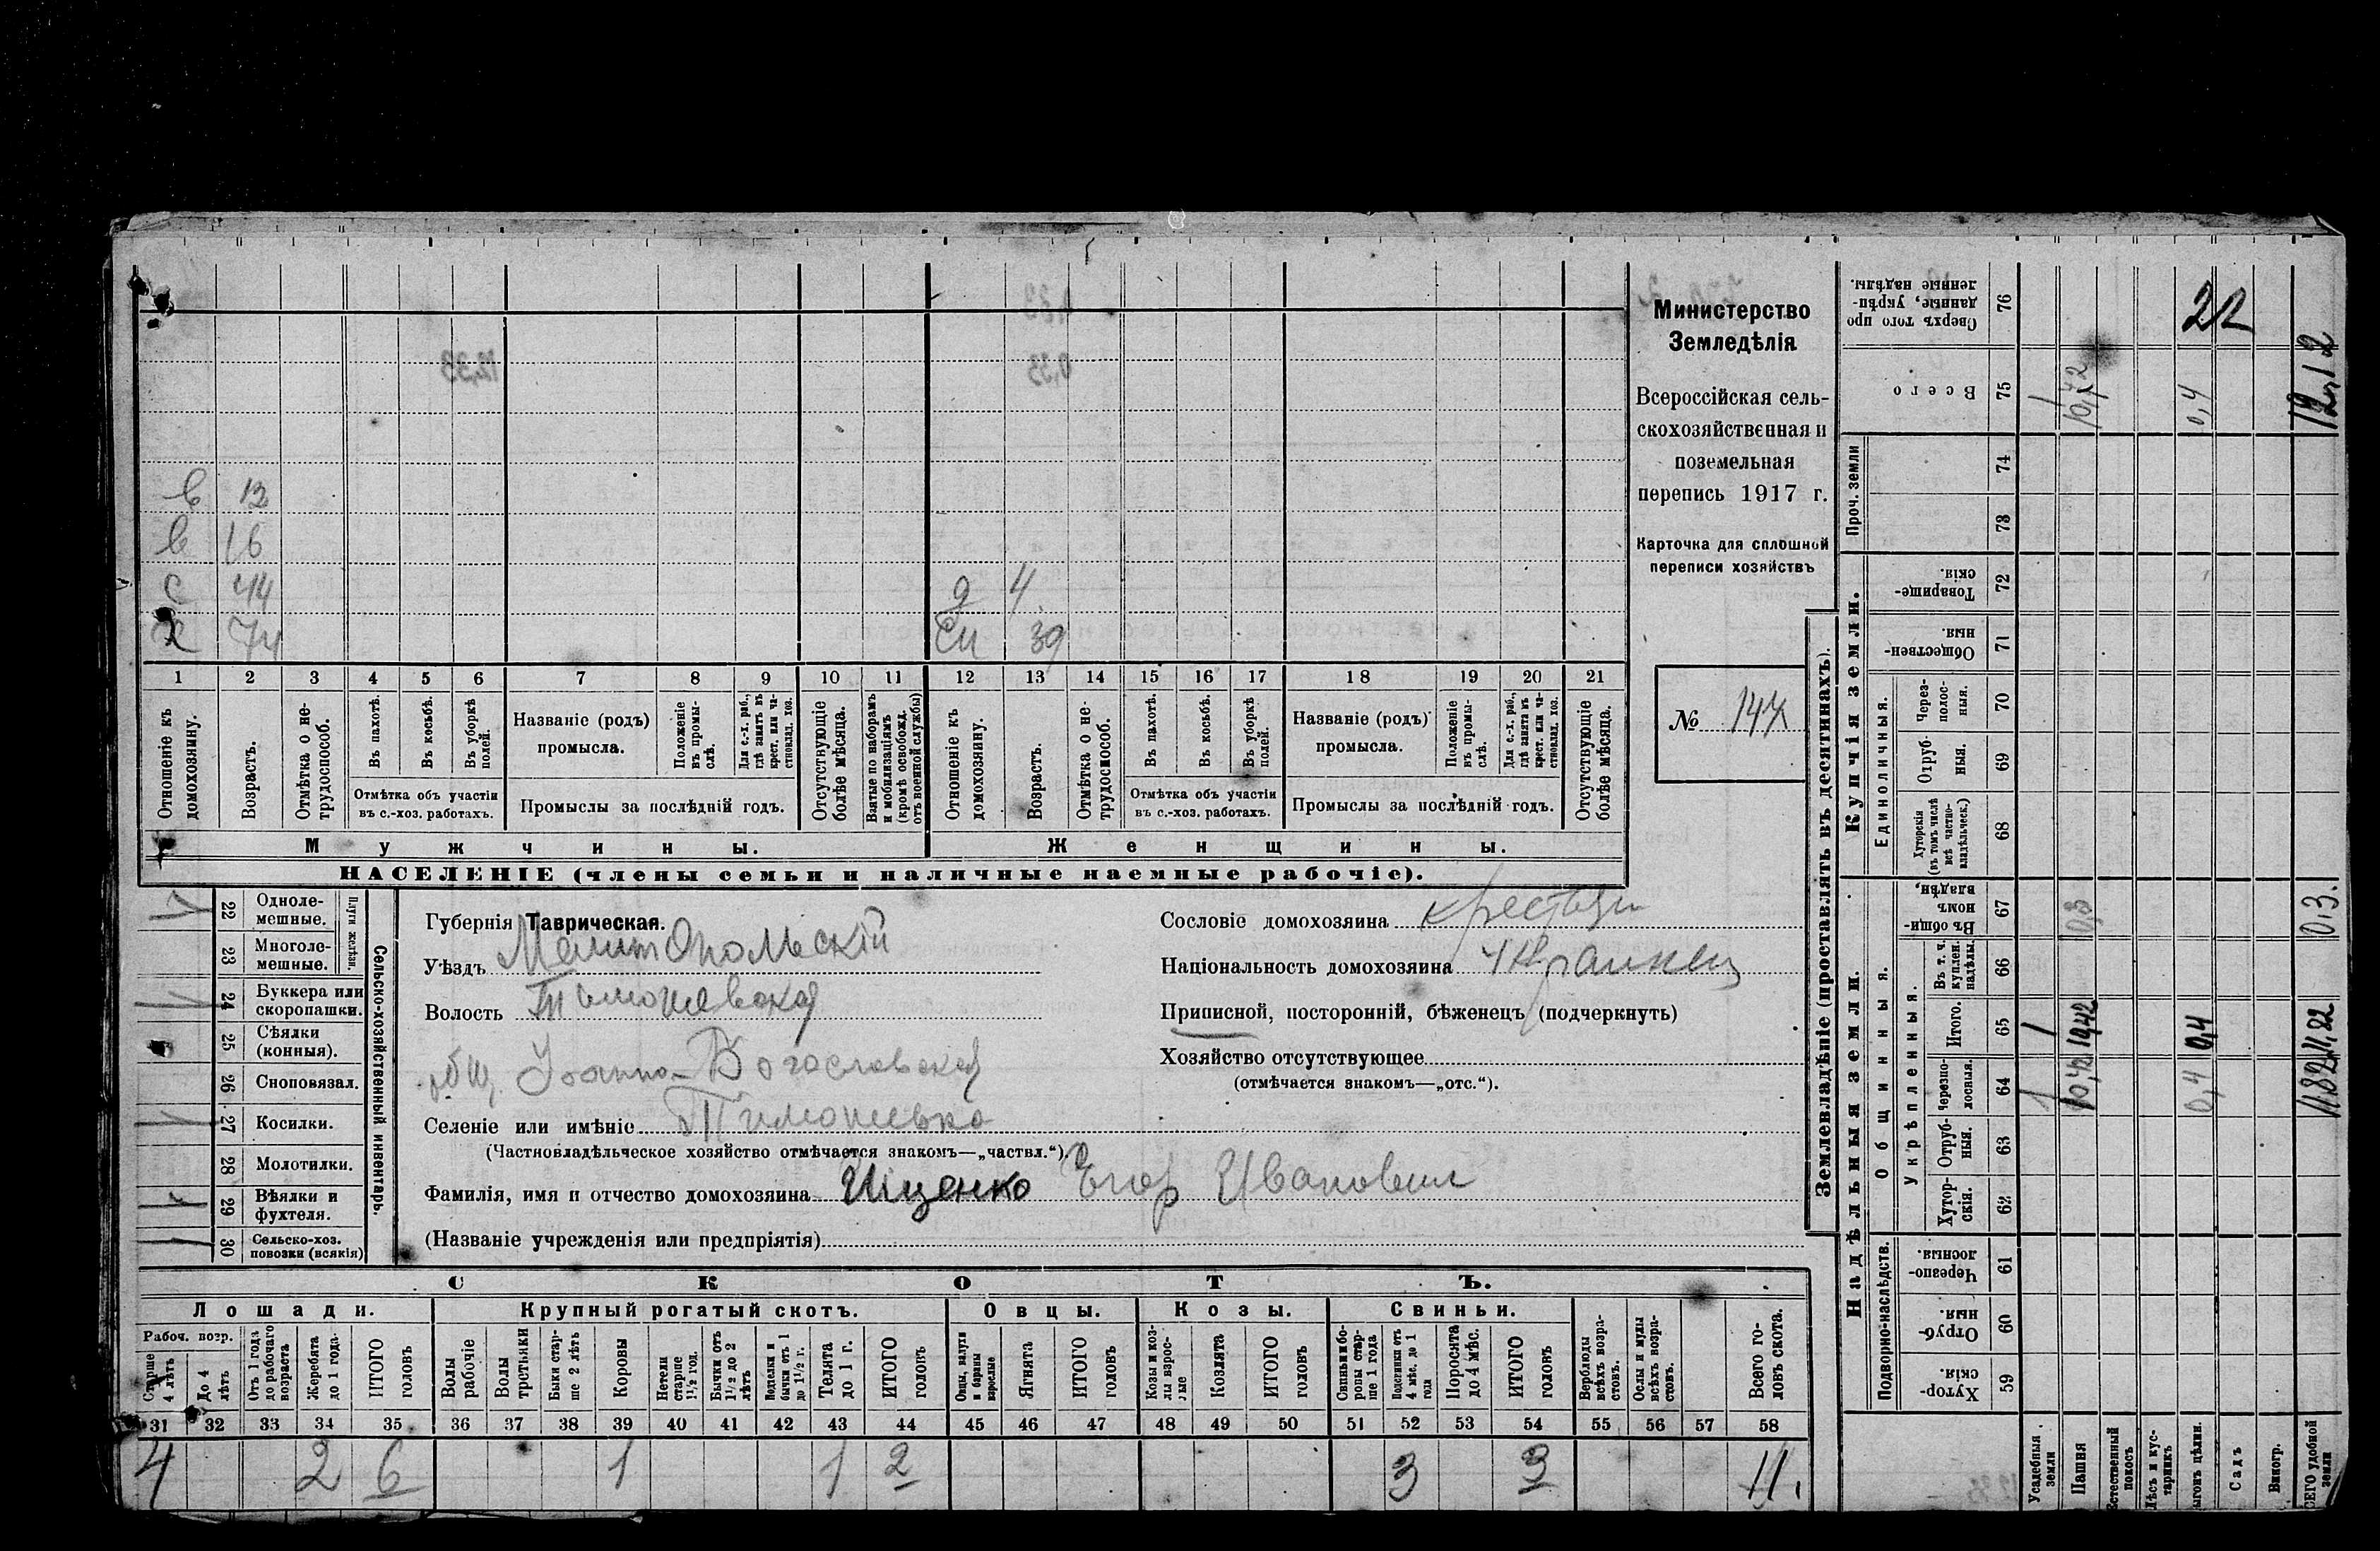 Министерство
Земледѣлія
Всероссійская сель-
скохозяйственная и
поземельная
перепись 1917 г.
Карточка для сплошной
переписи хозяйствъ
№ 147
в 13
в 16
с 44
х 74
д 4
сн 39
1 2 3 4 5 6 7 8 9 10 11 12 13 14 15 16 17 18 19 20 21
Отношеніе къ домохозяину.
Возрастъ.
Отмѣтка о не-трудоспособ.
Въ пахотѣ.
Въ косьбѣ.
Въ уборкѣ полей.
Отмѣтка объ участіи
въ с.-хоз. работахъ.
Названіе (родъ)
промысла.
Положеніе въ промы-слѣ.
Для с.-х. раб., гдѣ занятъ въ крест. или ча-стновлад. хоз.
Промыслы за послѣдній годъ.
Отсутствующіе болѣе мѣсяца.
Взятые по наборамъ и мобилизаціямъ (кромѣ освобожд. отъ военной службы)
Отношеніе къ домохозяину.
Возрастъ.
Отмѣтка о не-трудоспособ.
Въ пахотѣ.
Въ косьбѣ.
Въ уборкѣ полей.
Отмѣтка объ участіи
въ с.-хоз. работахъ.
Названіе (родъ)
промысла.
Положеніе въ промы-слѣ.
Для с.-х. раб., гдѣ занята въ крест. или ча-стновлад. хоз.
Промыслы за послѣдній годъ.
Отсутствующіе болѣе мѣсяца.
Мужчины. Женщины.
НАСЕЛЕНІЕ (члены семьи и наличные наемные рабочіе).
Сельско-хозяйственный инвентарь.
Плуги желѣзн.
22 Одноле-мешные.
23 Многоле-мешные.
24 Буккера или скоропашки.
25 Сѣялки (конныя).
26 Сноповязал.
27 Косилки.
28 Молотилки.
29 Вѣялки и фухтеля.
30 Сельско-хоз. повозки (всякія)
Губернія Таврическая.
Уѣздъ Мелитопольскій
Волость Тимошевская
общ. Іоанно-Богословская
Селеніе или имѣніе Тимошевка
(Частновладѣльческое хозяйство отмѣчается знакомъ—„частвл.“).
Фамилія, имя и отчество домохозяина Ищенко Егор Иванович
(Названіе учрежденія или предпріятія)
Сословіе домохозяина крестьян
Національность домохозяина Украинец
Приписной, посторонній, бѣженецъ (подчеркнуть)
Хозяйство отсутствующее
(отмѣчается знакомъ—„отс.“).
СКОТЪ.
Лошади. Крупный рогатый скотъ. Овцы. Козы. Свиньи.
Рабоч. возр.
Старше 4 лѣтъ
До 4 лѣтъ
Отъ 1 года до рабочаго возраста
Жеребята до 1 года
ИТОГО головъ
Волы рабочіе
Волы третьяки
Быки стар-ше 2 лѣтъ
Коровы
Нетели старше 1½ год.
Бычки отъ 1½ до 2 лѣтъ
Телки и бычки отъ 1 до 1½ г.
Телята до 1 г.
ИТОГО головъ
Овцы, валухи и бараны взрослые
Ягнята
ИТОГО головъ
Козы и коз-лы взрос-лые
Козлята
ИТОГО головъ
Свиньи и бо-ровы стар-ше 1 года
Подсвинки отъ 4 мѣс. до 1 года
Поросята до 4 мѣс.
ИТОГО головъ
Верблюды всѣхъ возра-стовъ.
Ослы и мулы всѣхъ возра-стовъ.
Всего го-ловъ скота.
31 32 33 34 35 36 37 38 39 40 41 42 43 44 45 46 47 48 49 50 51 52 53 54 55 56 57 58
4 2 6 1 1 2 3 3 11.
Землевладѣніе (проставлять въ десятинахъ).
Надѣльныя земли. Купчія земли.
Подворно-наслѣдств.
Общинныя.
Укрѣпленныя.
Единоличныя.
Проч. земли
59 Хутор-скія.
60 Отруб-ныя.
61 Черезпо-лосныя.
62 Хутор-скія.
63 Отруб-ныя.
64 Черезпо-лосныя.
65 Итого.
66 Въ т. ч. куплен. надѣлы.
67 Въ общи-номъ владѣн.
68 Хуторскія (въ томъ числѣ всѣ частно-владѣльческ.)
69 Отруб-ныя.
70 Через-полос-ныя.
71 Обществен-ныя.
72 Товарище-скія.
73
74
75 Всего
76 Сверхъ того про-данные, укрѣп-ленные надѣлы.
Усадебныя земли 1 1 1
Пашня 10,42 10,42 0,3 10,72
Естественный покосъ
Лѣсъ и кус-тарникъ
Выгонъ цѣлин. 0,4 0,4 0,4
Садъ
Виногр.
ВСЕГО удобной земли 11.82 11,82 0,3. 12,12